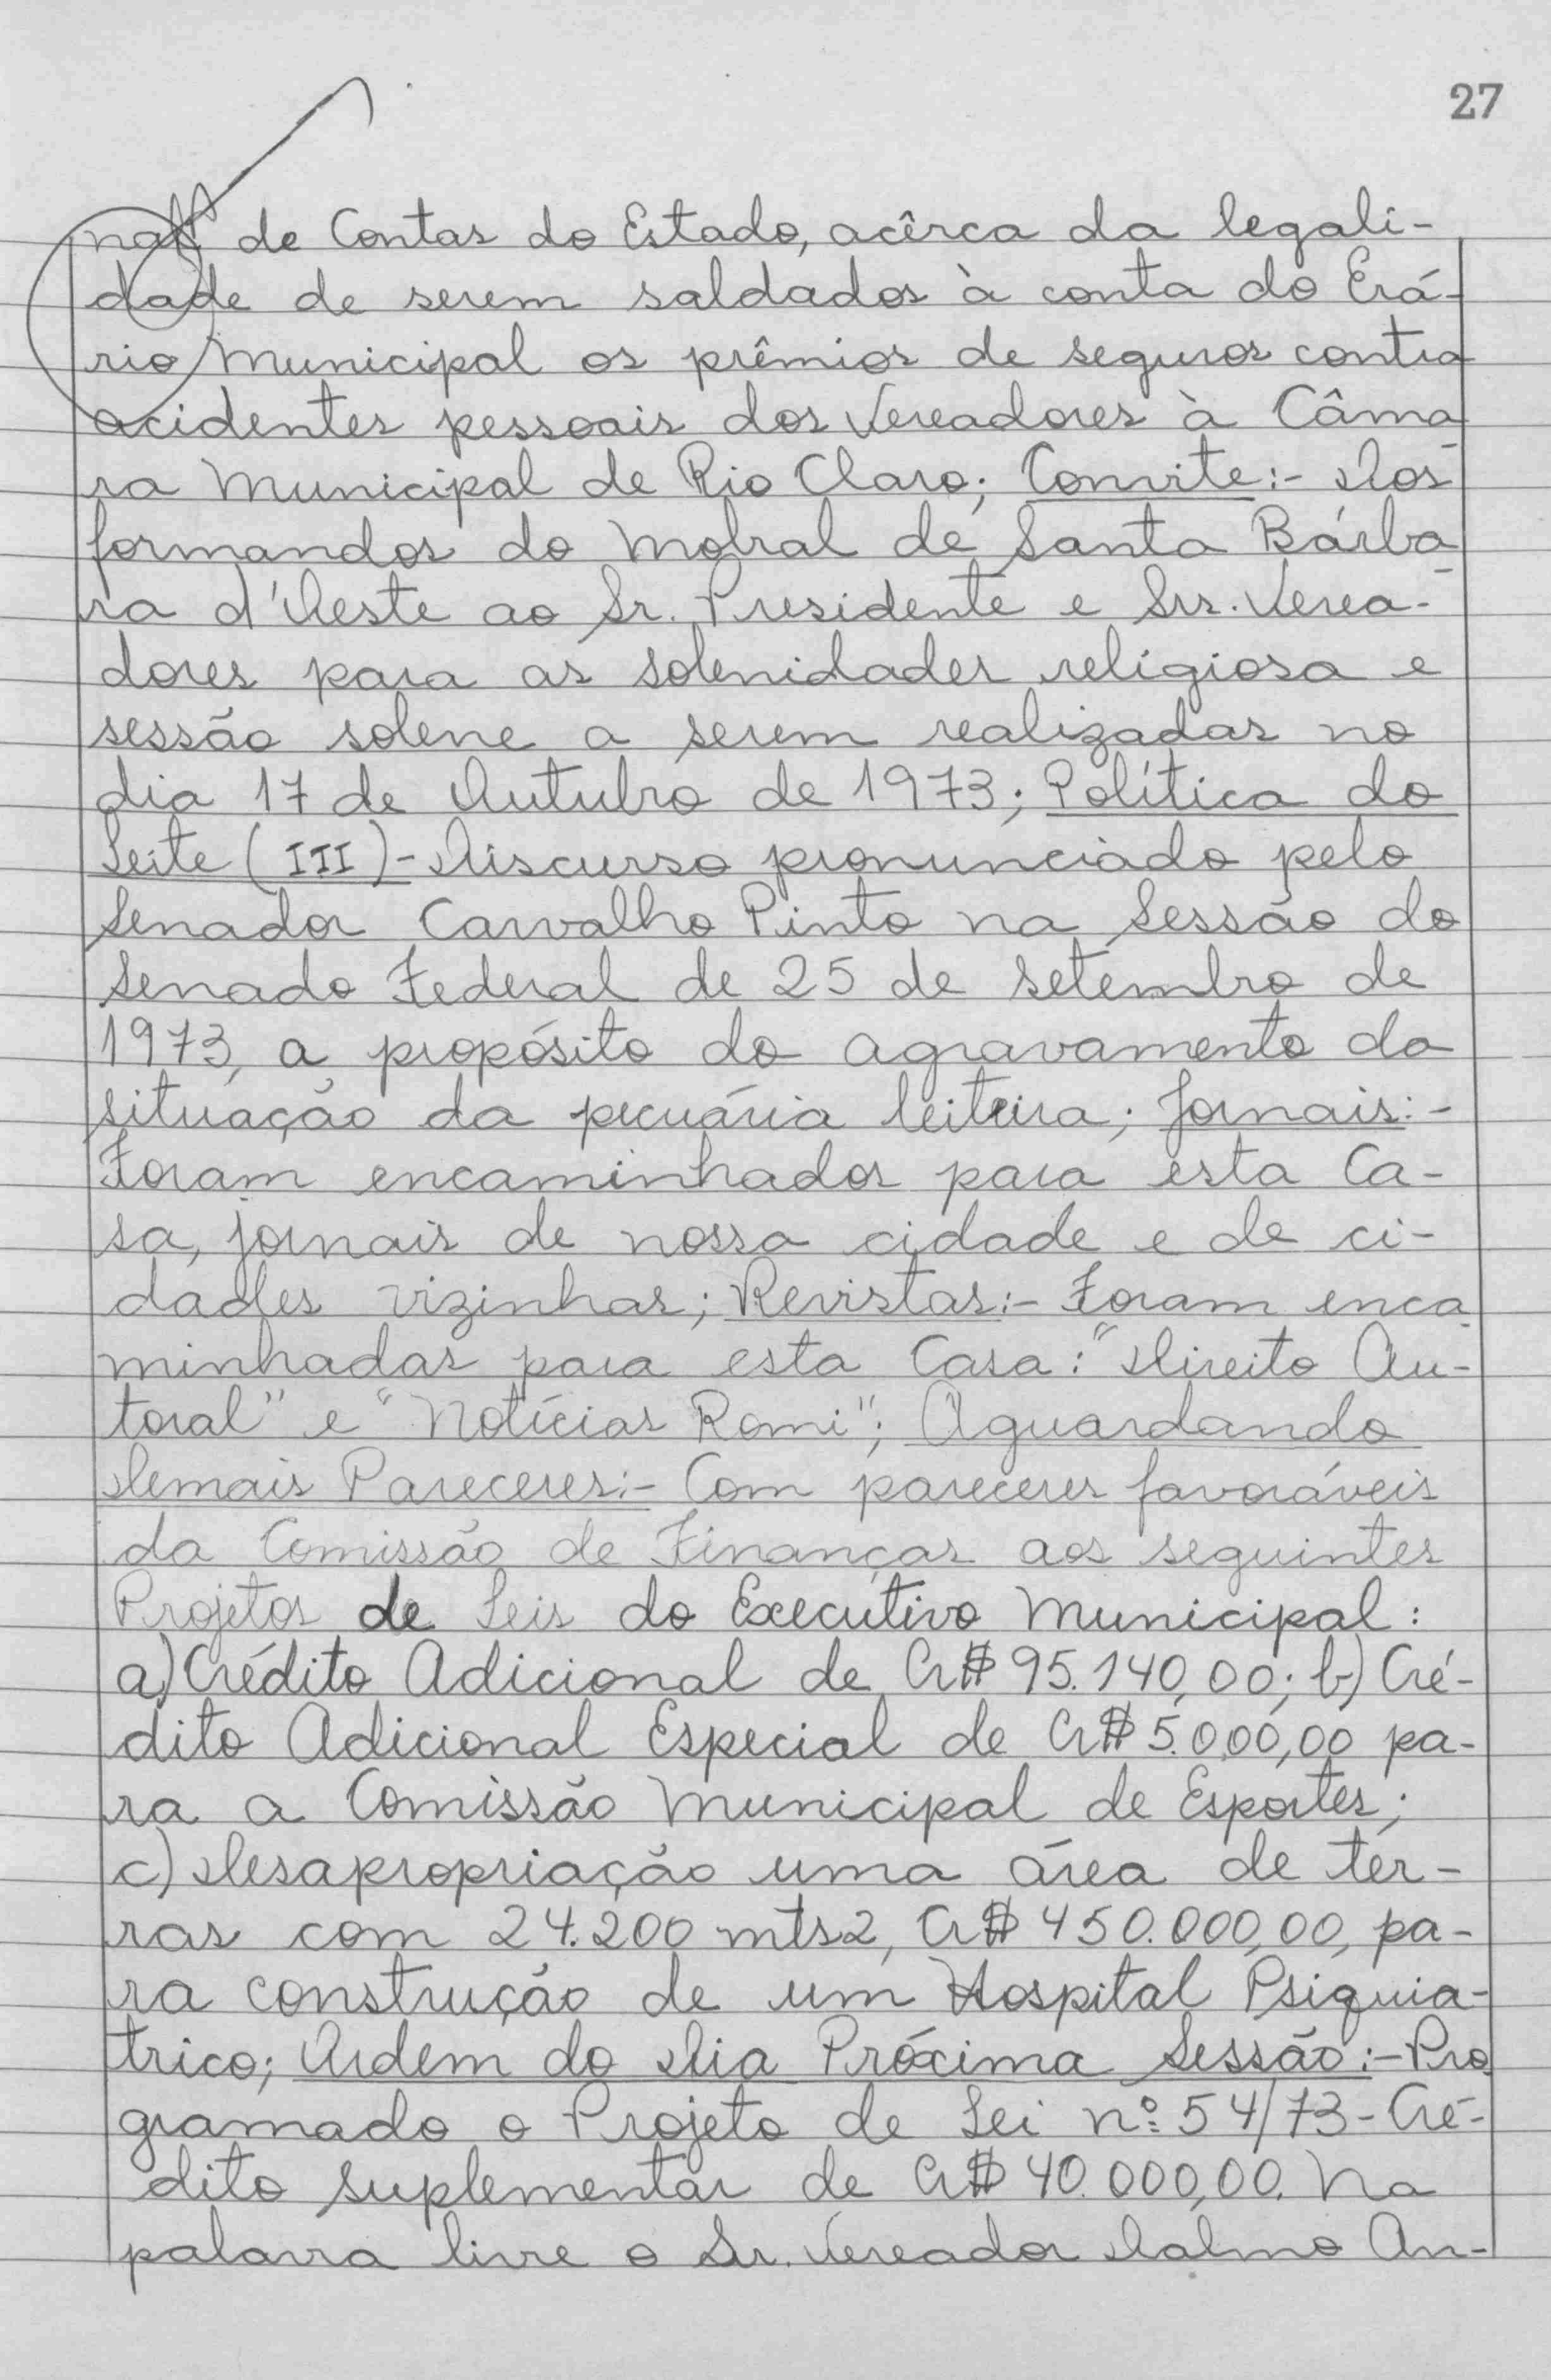 27
nal de Contas do Estado, acêrca da legali-
dade de serem saldados à conta do Erá-
rio Municipal os prêmios de seguros contra
acidentes pessoais dos Vereadores à Câma-
ra Municipal de Rio Claro; Convite:- Dos
formandos do Mobral de Santa Bárba-
ra d'Oeste ao Sr. Presidente e Srs. Verea-
dores para as solenidades religiosa e
sessão solene a serem realizadas no
dia 17 de Outubro de 1973; Política do
Leite (III) - Discurso pronunciado pelo
Senador Carvalho Pinto na Sessão do
Senado Federal de 25 de setembro de
1973, a propósito do agravamento da
situação da pecuária leiteira; Jornais:-
Foram encaminhados para esta Ca-
sa, jornais de nossa cidade e de ci-
dades vizinhas; Revistas:- Foram enca-
minhadas para esta Casa: "Direito Au-
toral" e "Notícias Romi"; Aguardando
Demais Pareceres:- Com pareceres favoráveis
da Comissão de Finanças aos seguintes
Projetos de Leis do Executivo Municipal:
a) Crédito Adicional de Cr$ 95.140,00; b) Cré-
dito Adicional Especial de Cr$ 5.000,00 pa-
ra a Comissão Municipal de Esportes;
c) Desapropriação uma área de ter-
ras com 24.200 mts2, Cr$ 450.000,00, pa-
ra construção de um Hospital Psiquia-
trico; Ordem do Dia Próxima Sessão:- Pro
gramado o Projeto de Lei nº 54/73 - Cré-
dito suplementar de Cr$ 40.000,00. Na
palavra livre o Sr. Vereador Dalmo An-